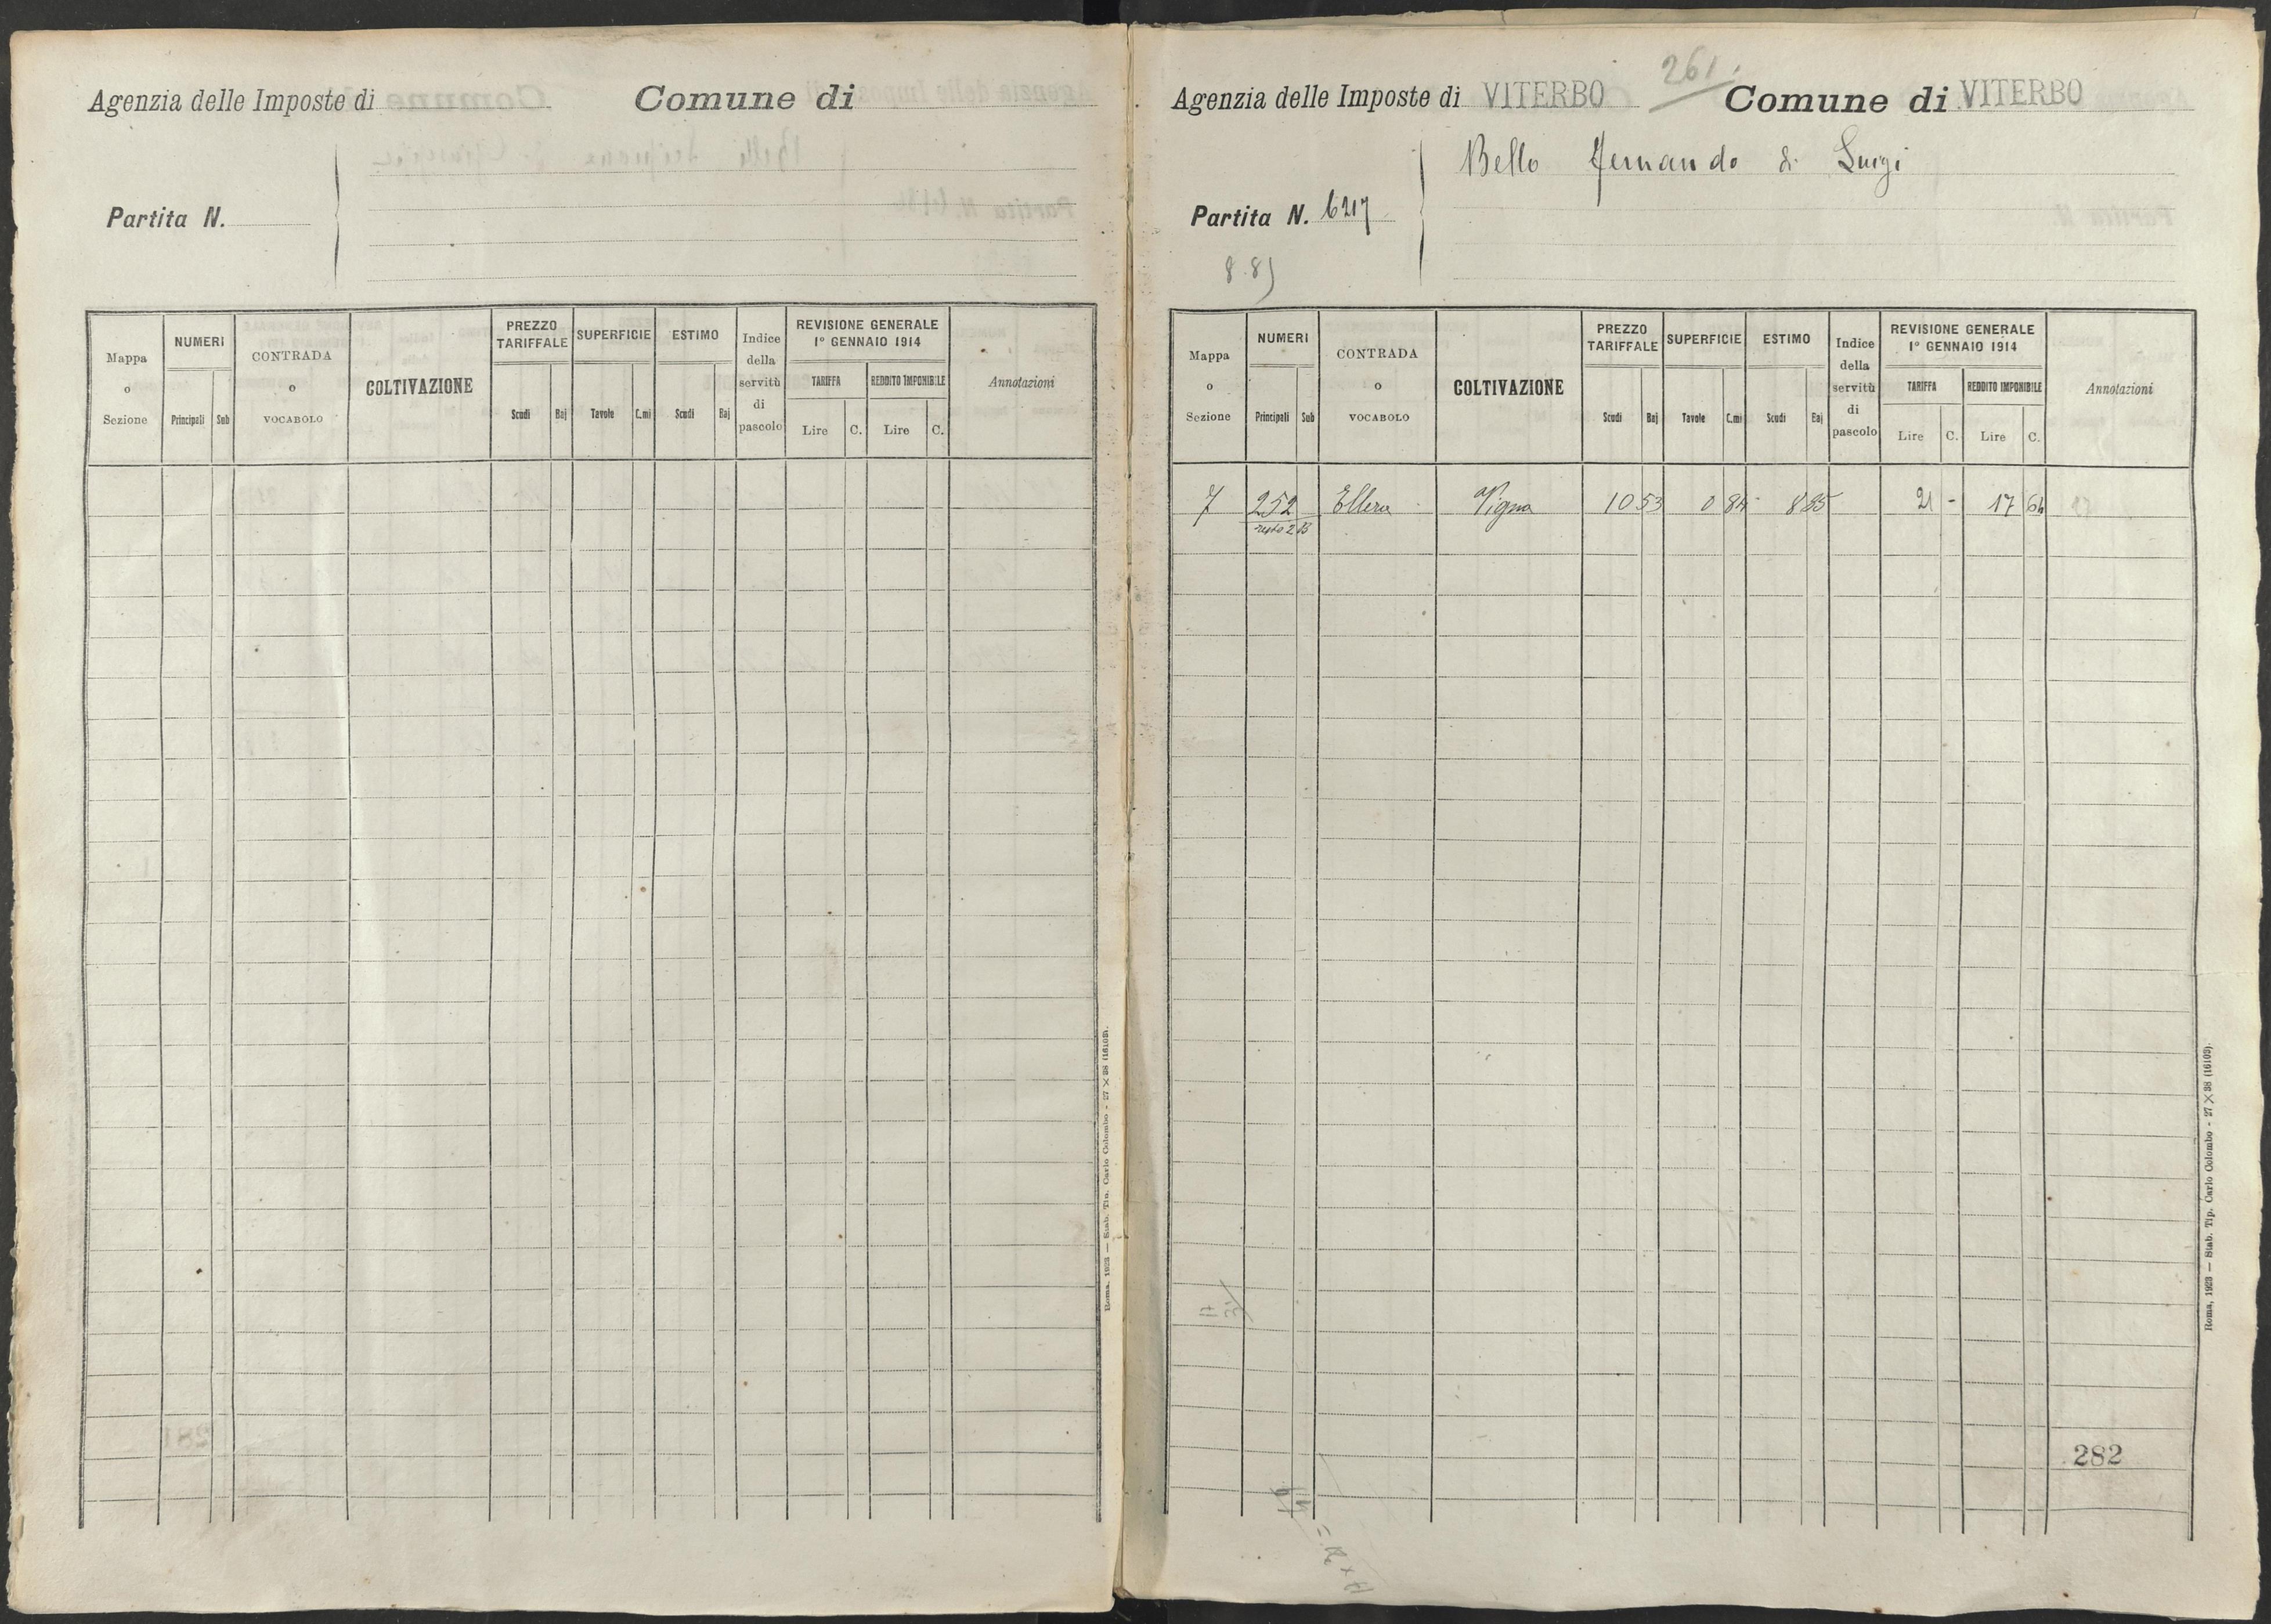 Agenzia delle Imposte di Comune di
Partita N.
Mappa o Sezione
NUMERI
Principali Sub
CONTRADA o VOCABOLO
COLTIVAZIONE
PREZZO TARIFFALE
Scudi Baj
SUPERFICIE
Tavole C.mi
ESTIMO
Scudi Baj
Indice della servitù di pascolo
REVISIONE GENERALE
1° GENNAIO 1914
TARIFFA REDDITO IMPONIBILE
Lire C. Lire C.
Annotazioni
Roma, 1923 — Stab. Tip. Carlo Colombo - 27 × 38 (16103).
261.
Agenzia delle Imposte di VITERBO Comune di VITERBO
Bello Fernando di Luigi
Partita N. 6217
8.85
Mappa o Sezione
NUMERI
Principali Sub
CONTRADA o VOCABOLO
COLTIVAZIONE
PREZZO TARIFFALE
Scudi Baj
SUPERFICIE
Tavole C.mi
ESTIMO
Scudi Baj
Indice della servitù di pascolo
REVISIONE GENERALE
1° GENNAIO 1914
TARIFFA REDDITO IMPONIBILE
Lire C. Lire C.
Annotazioni
7 252 Ellera Vigna 10 53 0 84 8 85 21 - 17 64
282
Roma, 1923 — Stab. Tip. Carlo Colombo - 27 × 38 (16103).